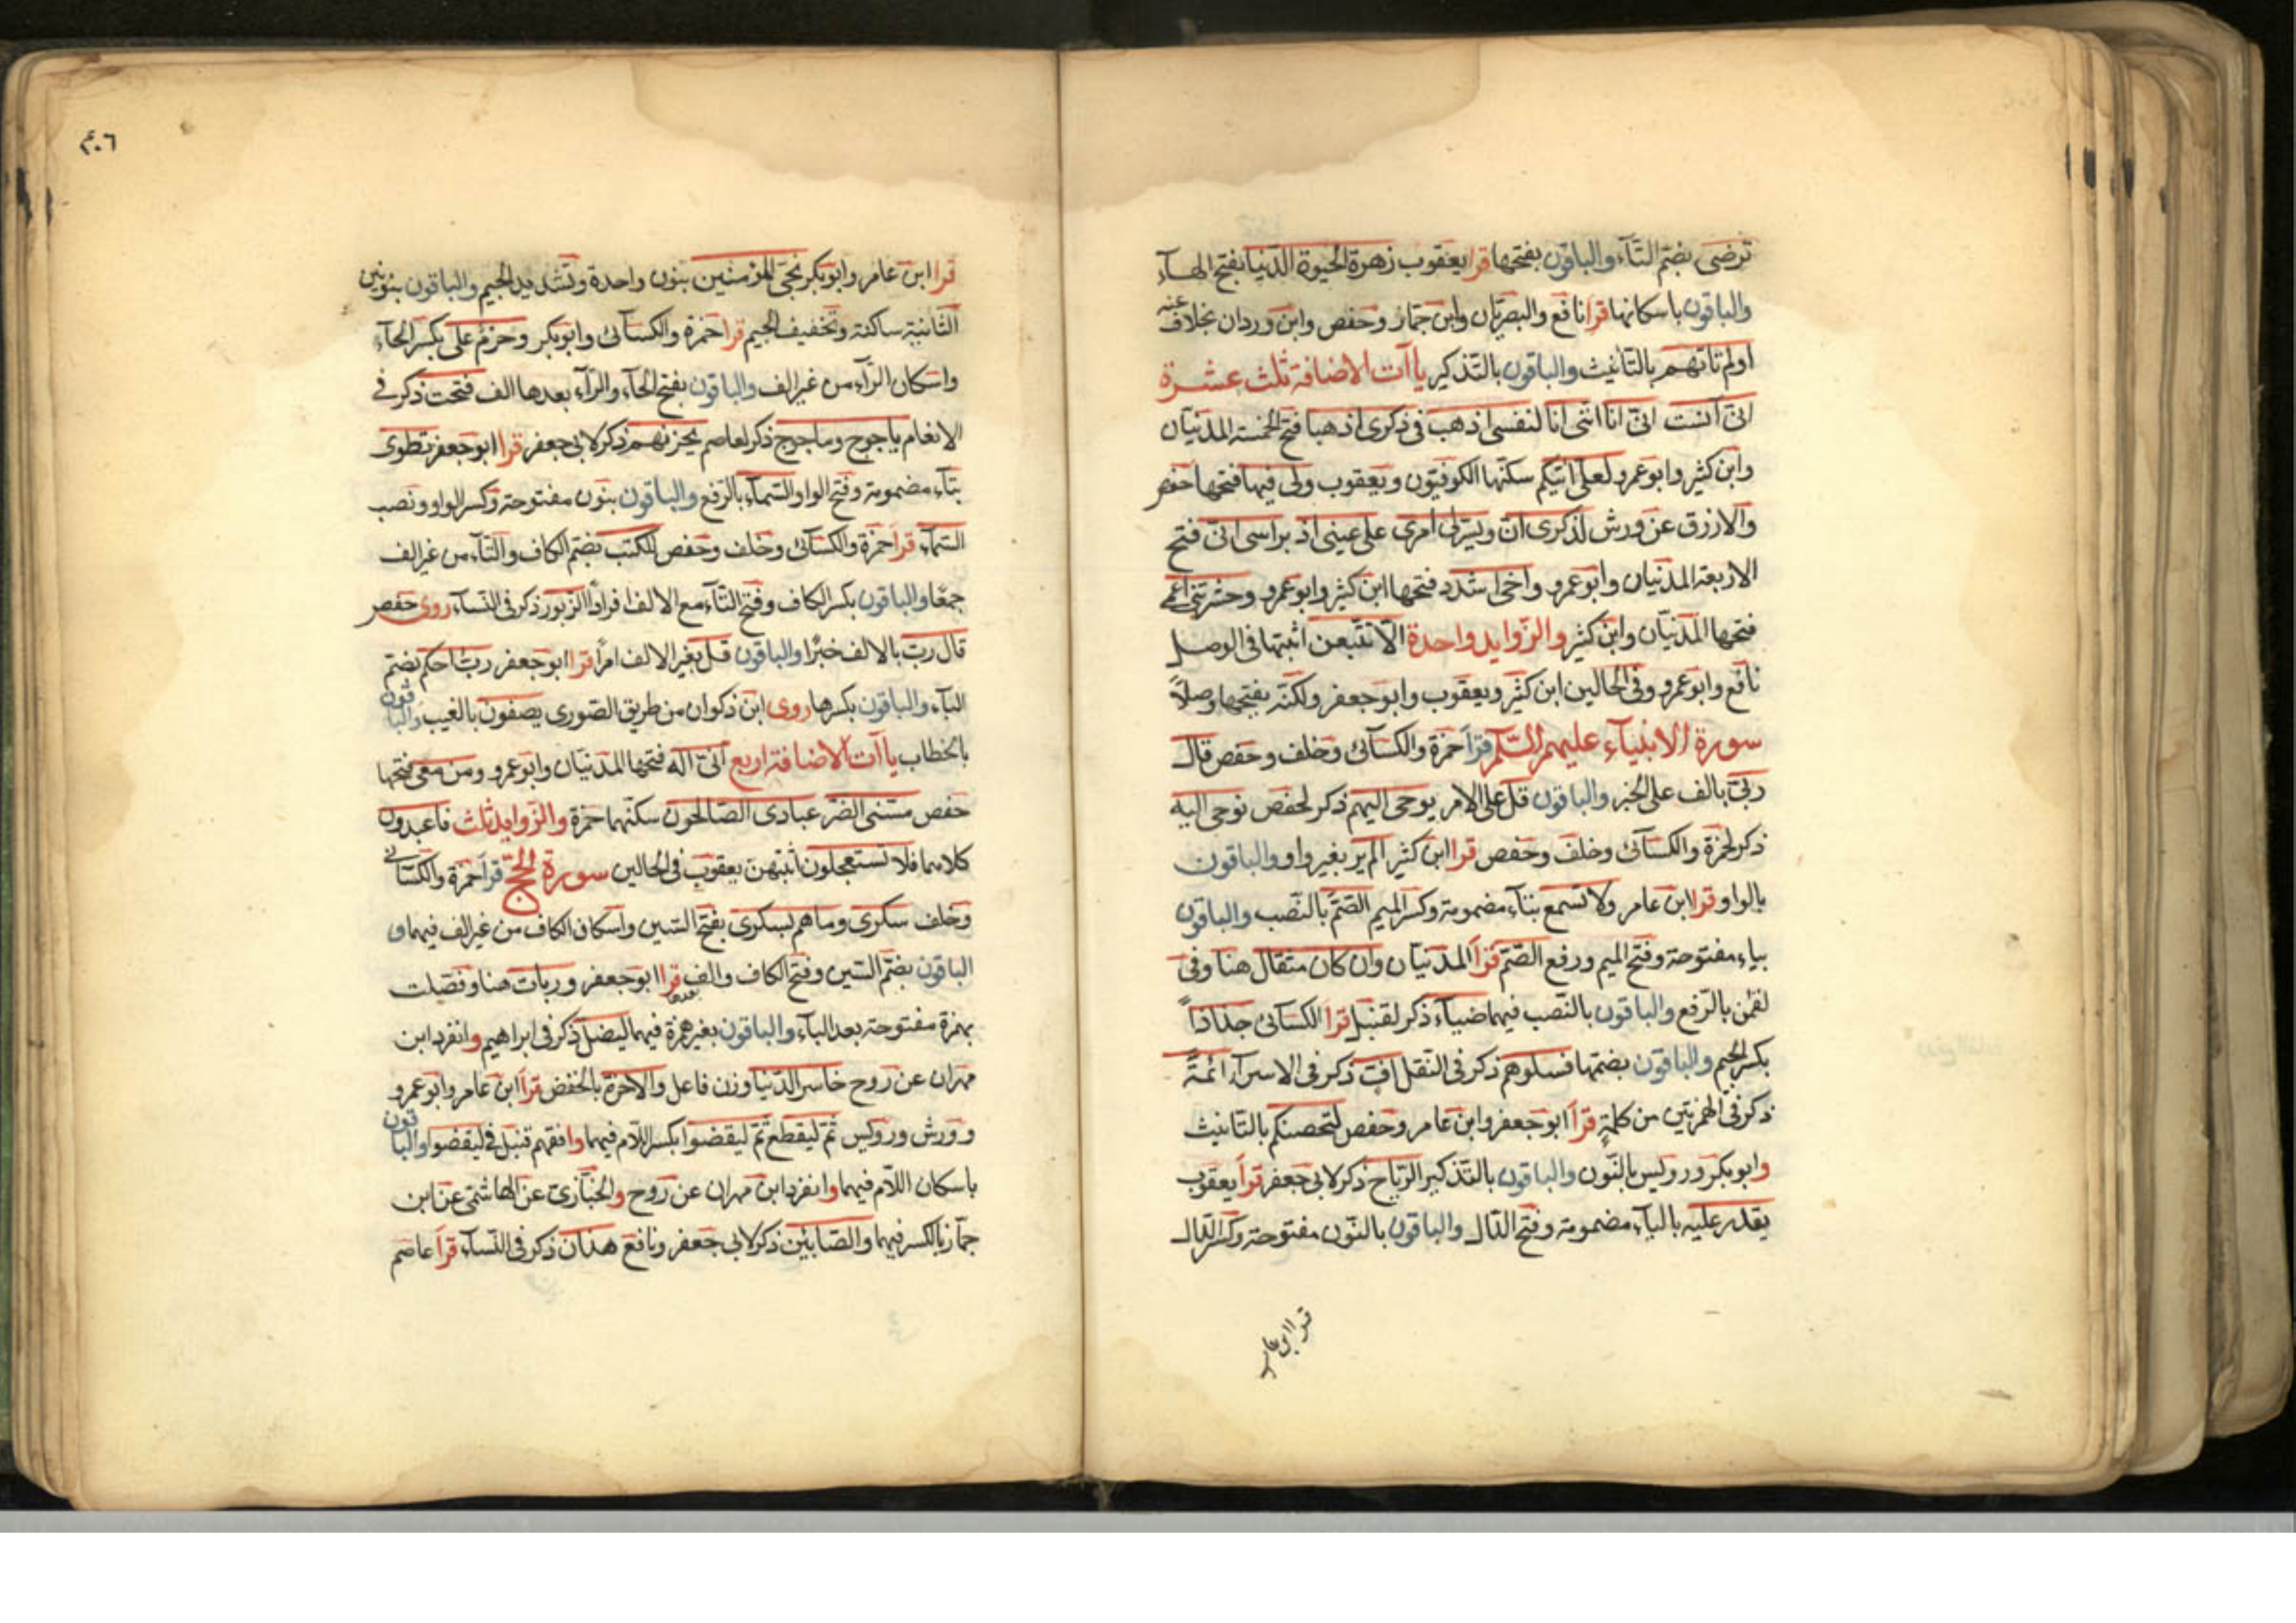 ترضى بضم التآء والباقون بفتحها قرا يعقوب زهرة الحيوة الدنيا بفتح الهآء
والباقون باسكانها قرا نافع والبصريان وابن جماز وحفص وابن وردان بخلاف عنه
اولم تاتهم بالتانيث والباقون بالتذكير ياآت الاضافة ثلث عشرة
انى آنست انى انا اننى انا لنفسى اذهب فى ذكرى اذهبا فتح الخمسة المدنيان
وابن كثير وابو عمرو لعلى اتيكم سكنها الكوفيون ويعقوب ولى فيها فتحها حفص
والازرق عن ورش لذكرى ان ويسرلى امرى على عينى اذ براسى انى فتح
الاربعة المدنيان وابو عمرو واخى اشدد فتحها ابن كثير وابو عمرو وحشرتنى اعمى
فتحها المدنيان وابن كثير والزوايد واحدة الا تتبعن اثبتها فى الوصل
نافع وابو عمرو وفى الحالين ابن كثير ويعقوب وابو جعفر ولكنه يفتحها وصلاً
سورة الانبيآء عليهم السلم قرا حمزة والكسآئى وخلف وحفص قال
ربى بالف على الخبر والباقون قل على الامر يوحى اليهم ذكر لحفص نوحى اليه
ذكر لحمزة والكسآئى وخلف وحفص قرا ابن كثير الم ير بغير واو والباقون
بالواو قرا ابن عامر ولا تسمع بتآء مضمومة وكسر الميم الصم بالنصب والباقون
بياء مفتوحة وفتح الميم ورفع الصم قرا المدنيان وان كان مثقال هنا وفى
لقمن بالرفع والباقون بالنصب فيهما ضيآء ذكر لقنبل قرا الكسآئى جذاذاً
بكسر الجيم والباقون بضمها فسلوهم ذكر فى النقل اف ذكر فى الاسرآء ائمة
ذكر فى الهمزتين من كلمة قرا ابو جعفر وابن عامر وحفص لتحصنكم بالتانيث
وابو بكر ورويس بالنون والباقون بالتذكير الرياح ذكر لابى جعفر قرا يعقوب
يقدر عليه بالياء مضمومة وفتح الدال والباقون بالنون مفتوحة وكسر الدال
قرا ابن عامر
٤٠٦
قرا ابن عامر وابو بكر نجى المؤمنين بنون واحدة وتشديد الجيم والباقون بنونين
الثانية ساكنة وتخفيف الجيم قرا حمزة والكسآئى وابو بكر وحرم على بكسر الحآء
واسكان الرآء من غير الف والباقون بفتح الحآء والرآء بعدها الف فتحت ذكر فى
الانعام ياجوج وماجوج ذكر لعاصم يحزنهم ذكر لابى جعفر قرا ابو جعفر تطوى
بتآء مضمومة وفتح الواو السمآء بالرفع والباقون بنون مفتوحة وكسر الواو ونصب
السمآء قرا حمزة والكسآئى وخلف وحفص للكتب بضم الكاف والتآء من غير الف
جمعًا والباقون بكسر الكاف وفتح التآء مع الالف افراداً الزبور ذكر فى النسآء روى حفص
قال رب بالالف خبرًا والباقون قل بغير الالف امراً قرا ابو جعفر رب احكم بضم
البآء والباقون بكسرها روى ابن ذكوان من طريق الصورى يصفون بالغيب والباقون
بالخطاب ياآت الاضافة اربع انى اله فتحها المدنيان وابو عمرو ومن معى فتحها
حفص مسنى الضر عبادى الصالحون سكنهما حمزة والزوايد ثلث فاعبدون
كلاهما فلا تستعجلون اثبتهن يعقوب فى الحالين سورة الحج قرا حمزة والكسائى
وخلف سكرى وما هم بسكرى بفتح السين واسكان الكاف من غير الف فيهما و
الباقون بضم السين وفتح الكاف والف بعدها قرا ابو جعفر وربات هنا وفصلت
بهمزة مفتوحة بعد البآء والباقون بغير همزة فيهما ليضل ذكر فى ابراهيم وانفرد ابن
مهران عن روح خاسر الدنيا وزن فاعل والاخرة بالخفض قرا ابن عامر وابو عمرو
وورش ورويس ثم ليقطع ثم ليقضوا بكسر اللام فيهما وافقهم قنبل فى ليقضوا والباقون
باسكان اللام فيهما وانفرد ابن مهران عن روح والخبازى عن الهاشمى عن ابن
جماز بالكسر فيهما والصابئين ذكر لابى جعفر ونافع هذان ذكر فى النسآء قرا عاصم